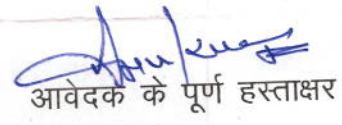 आवेदक के पूर्ण हस्ताक्षर